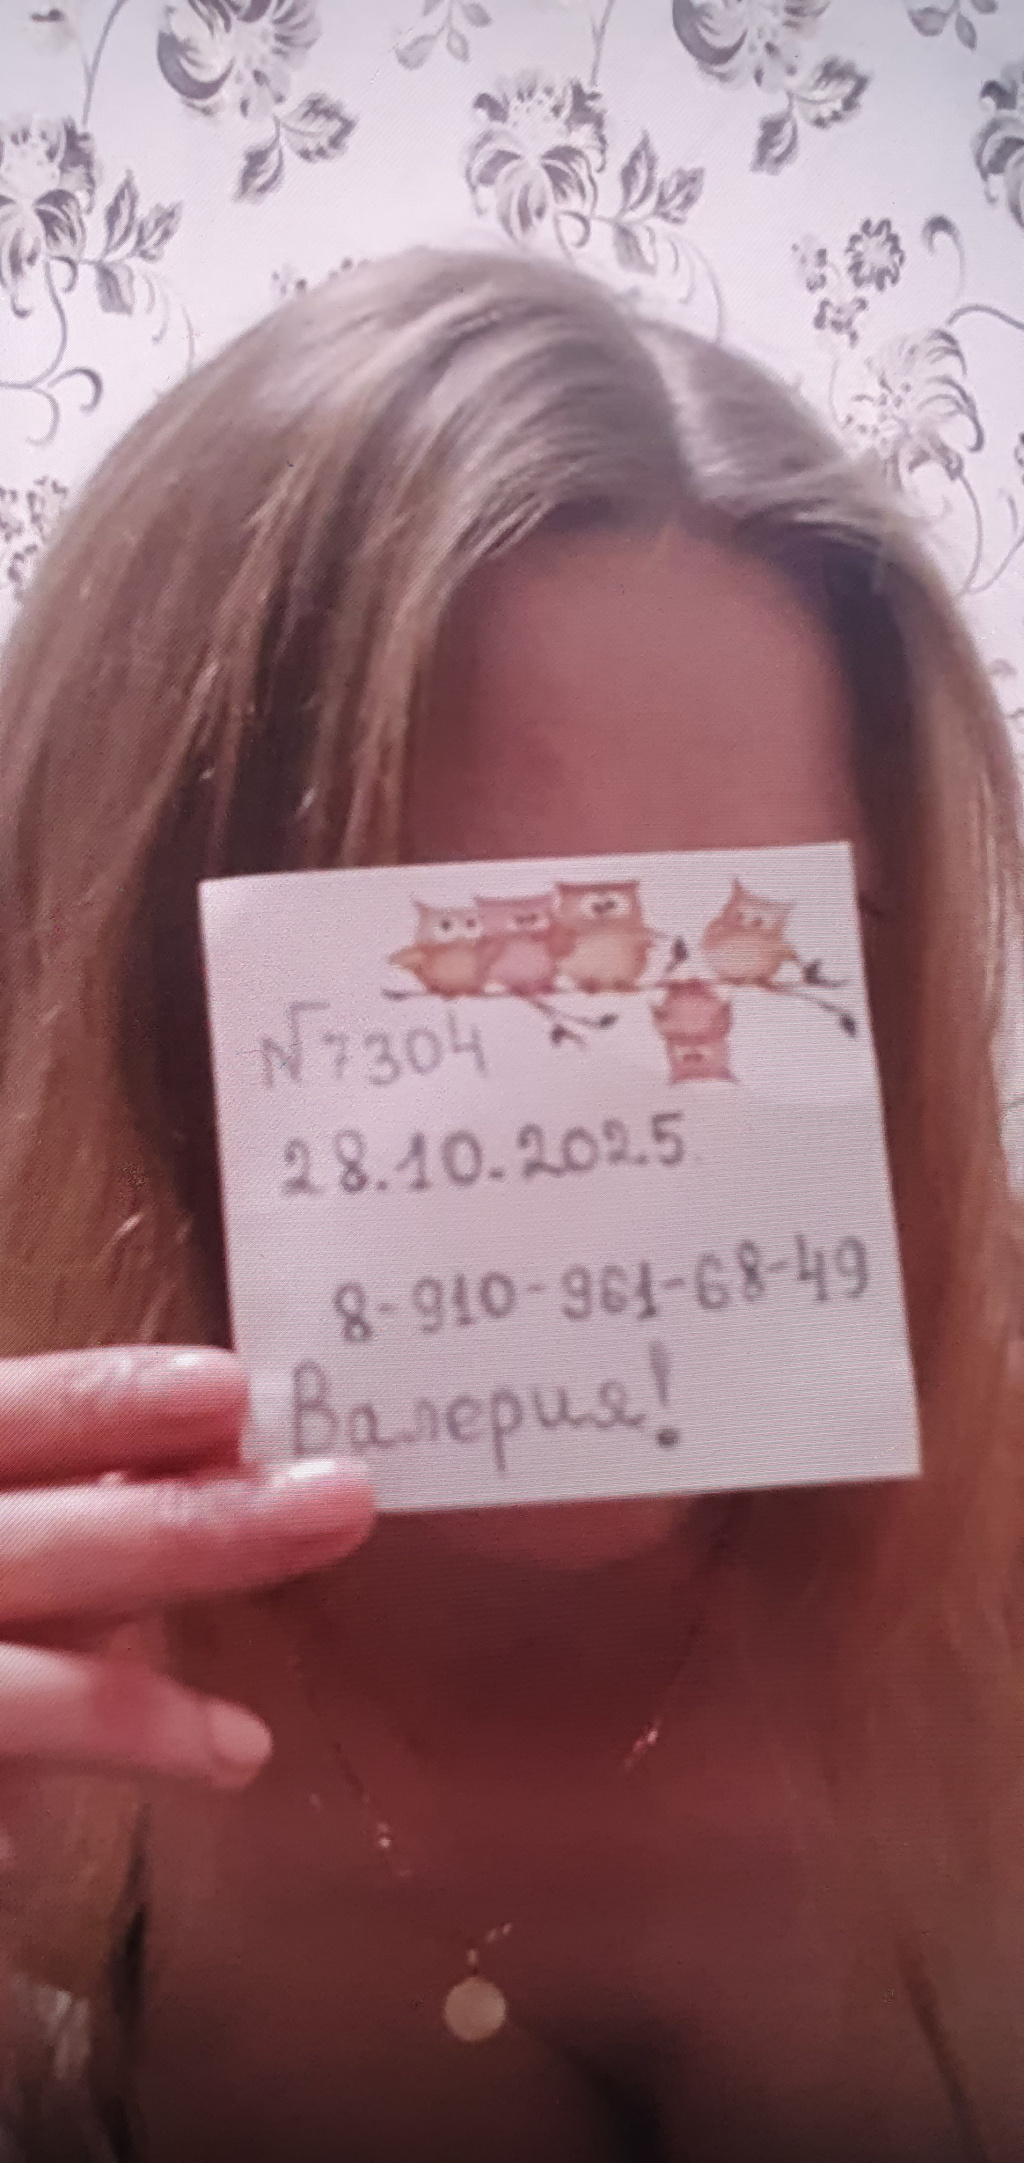 №7304
28.10.2025
8-910-961-68-49
Валерия!